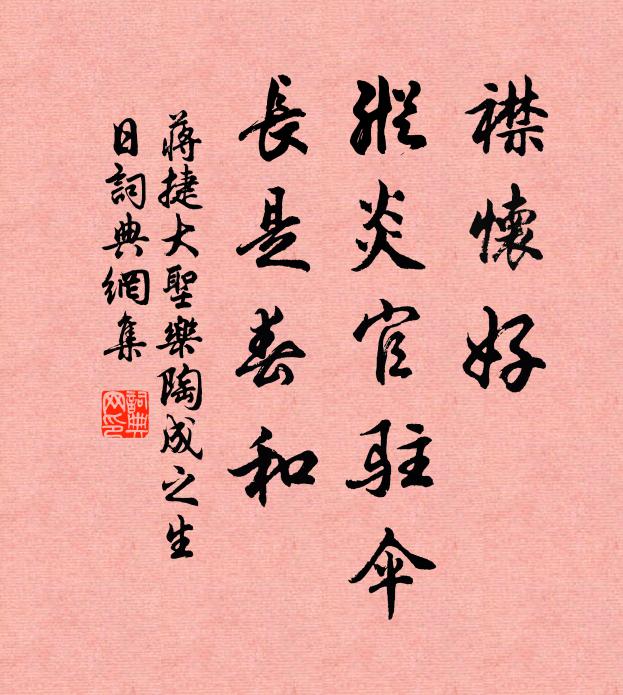 襟懷好
縱炎官駐傘
長是春和
蔣捷大聖樂陶成之生
日詞典網集
詞典
网印